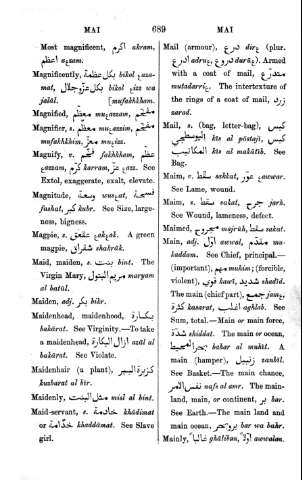 MAI 689 MAI
Most magnificent, اكرم akram,
اعظم aɛzam.
Magnificently, بكل عظمة bikol ɛaza-
mat, بكل عز و جلال bikol ɛizz wa
jalâl. [mufakhkham.
Magnified, معظم muɛazzam, مفخم
Magnifier, s. معظم muɛazzim, مفخم
mufakhkhim, معز muɛizz.
Magnify, v. فخم fakhkham, عظم
ɛazzam, كرم karram, عز ɛazz. See
Extol, exaggerate, exalt, elevate.
Magnitude, وسعة wusɛat, فسحة
fushat, كبر kubr. See Size, large-
ness, bigness.
Magpie, s. عقعق ɛakɛak. A green
magpie, شقراق shakrâk.
Maid, maiden, s. بنت bint. The
Virgin Mary, مريم البتول maryam
al batûl.
Maiden, adj. بكر bikr.
Maidenhead, maidenhood, بكارة
bakârat. See Virginity.—To take
a maidenhead, ازال البكارة azâl al
bakârat. See Violate.
Maidenhair (a plant), كزبرة البير
kuzbarat al bîr.
Maidenly, مثل البنت misl al bint.
Maid-servant, s. خادمة khâdimat
or خدامة khaddâmat. See Slave
girl.
Mail (armour), درع dirɛ (plur.
ادرع adruɛ, دروع durûɛ). Armed
with a coat of mail, متدرع
mutadarriɛ. The intertexture of
the rings of a coat of mail, زرد
zarad.
Mail, s. (bag, letter-bag), كيس
البوسطجي kîs al pôstajî, كيس
المكاتيب kîs al makâtîb. See
Bag.
Maim, v. سقط sakkat, عور ɛawwar.
See Lame, wound.
Maim, s. سقط sakat, جرح jarh.
See Wound, lameness, defect.
Maimed, مجروح majrûh, سقط sakat.
Main, adj. اول awwal, مقدم mu-
kaddam. See Chief, principal.—
(important), مهم muhim; (forcible,
violent), قوي kawî, شديد shadîd.
The main (chief part), جمع jamɛ,
كثرة kasarat, اغلب aghlab. See
Sum, total.—Main or main force,
شدة shiddat. The main or ocean,
بحر المحيط bahar al muhît. A
main (hamper), زنبيل zanbîl.
See Basket.—The main chance,
نفس الامر nafs al amr. The main-
land, main, or continent, بر bar.
See Earth.—The main land and
main ocean, بر و بحر bar wa bahar.
Mainly, غالبا ghâliban, اولا awwalan.